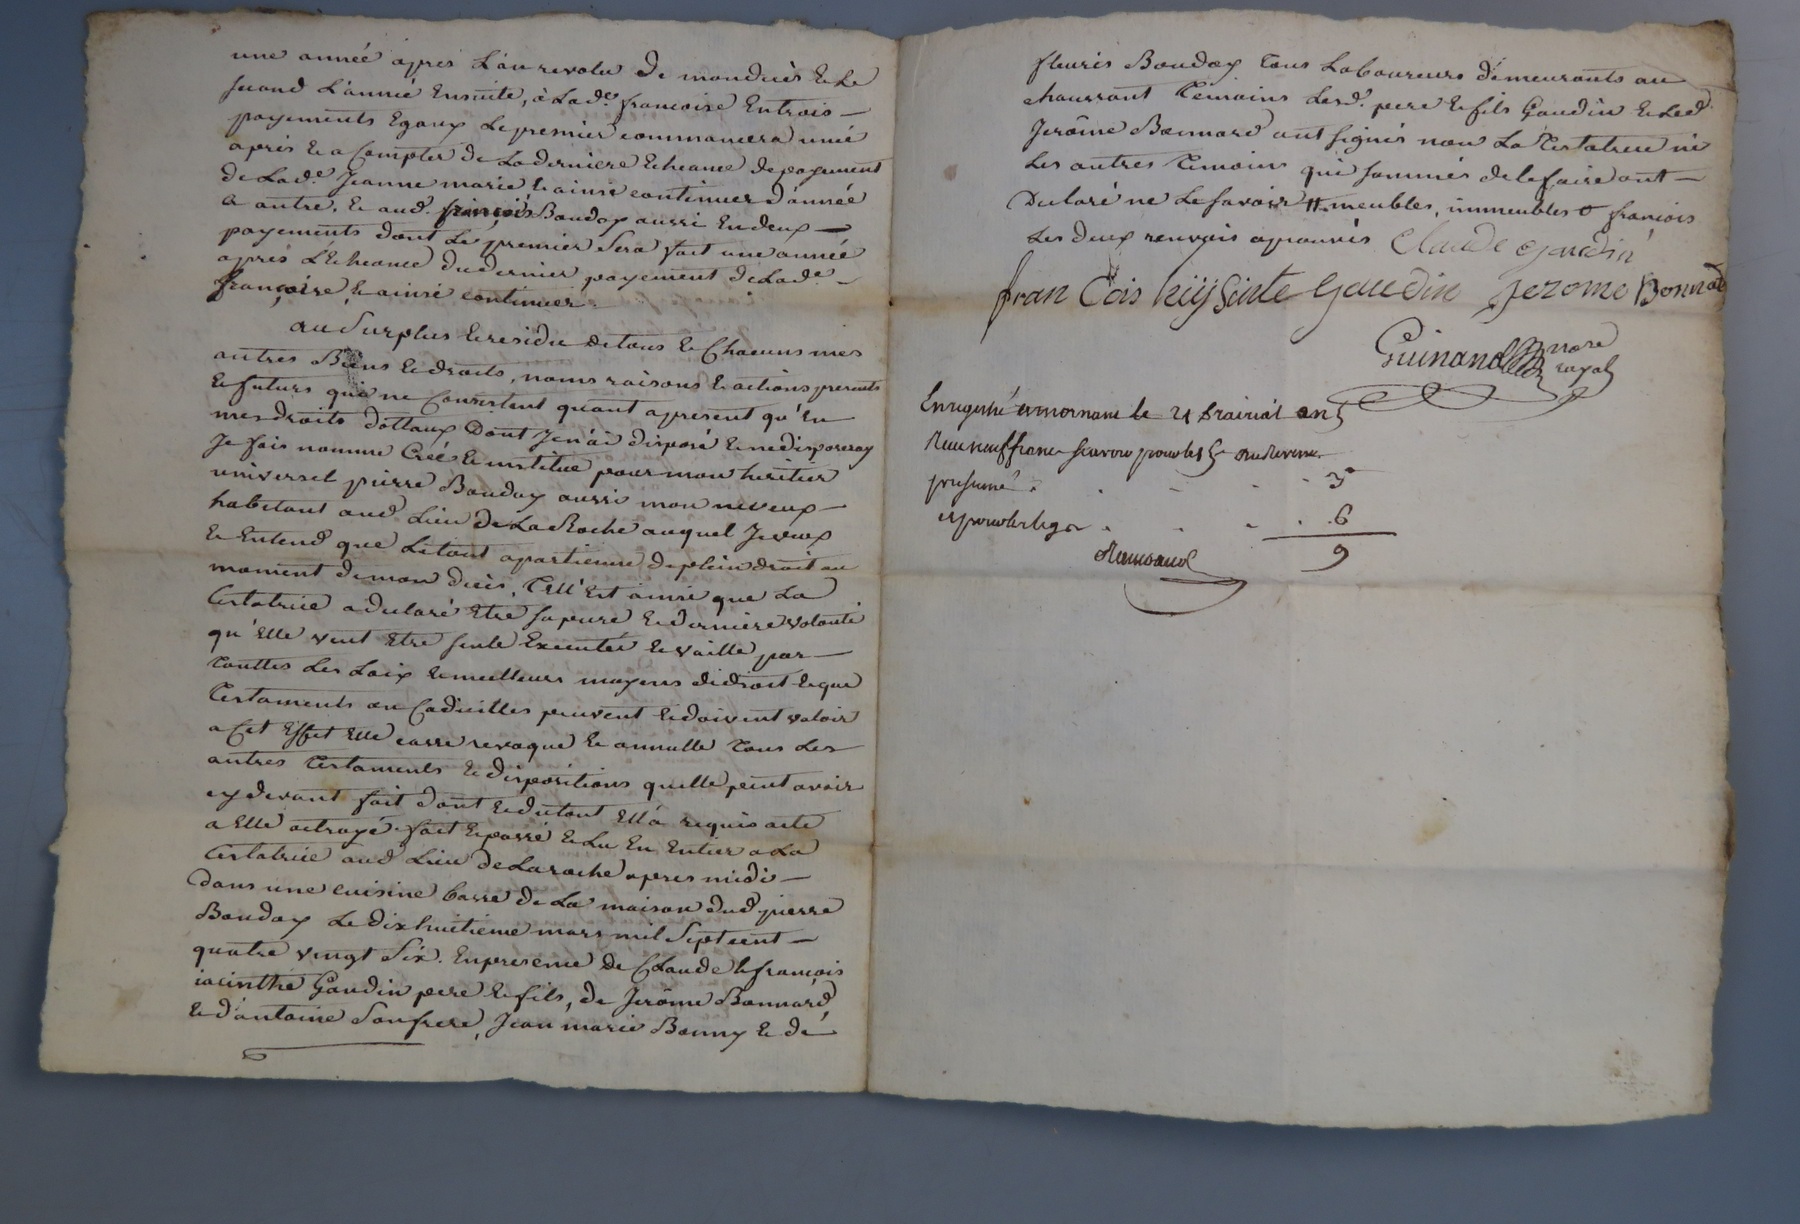 une année apres L'an revolu de mon decès & Le
second L'année Ensuite, à Lad.e francoise En trois —
payements Egaux Le premier commancera une
apres & a Compter de La derniere Echeance de payement
de Lad.e Jeanne marie & ainsi continuer d'année
a autre, & aud. françois Bouday aussi En deux —
payements dont Le premier Sera fait une année
après L'Echeance du dernier payement de Lad.e —
françoise & ainsi continuer.
au Surplus & residu de tous & Chacuns mes
autres Biens & droits, noms raisons & actions presents
& futurs qui ne Consistent quant apresent qu'En
mes droits dottaux Dont Je n'ai disposé & ne disposeray
Je fais nomme Créé & institue pour mon heritier
universel pierre Bouday aussi mon neveux —
habitant aud Lieu de La Roche auquel Je veux
& Entend que Le tout apartienne de plein droit au
moment de mon decès, Tell'Est ainsi que La
Testatrice a declaré Etre sa pure & derniere volonté
qu'Elle veut Etre seule Executée & vaille par —
Touttes Les Loix & meilleurs moyens de droit & que
Testaments ou Codicilles peuvent & doivent valoir
a Cet Effet Elle casse revoque & annulle Tous Les
autres Testaments & dispositions quelle peut avoir
cy devant fait dont & du tout Ell'a requis acte
a Elle octroyé. fait & passé & Lu En Entier a La
Testatrice aud Lieu de Laroche apres midi —
dans une cuisine basse de La maison dud pierre
Bouday Le dix huitieme mars mil Sept cent —
quatre vingt Six. En presence de Claude & françois
iacinthe Gaudin pere & fils, de Jerôme Bonnard,
& d'antoine Son frere, Jean marie Bonny & de
fleuris Bouday Tous Laboureurs demeurants au
chaussant Temoins Lesd. pere & fils Gaudin & Led.
Jerôme Bonnard ont signés non La Testatrice ni
Les autres Temoins qui sommés de le faire ont —
Declaré ne Le savoir # meubles, immeubles & françois
Les deux renvois aprouvés Claude gaudin
fran Cois hiySinte gaudin Jerome Bonnard
Guinand nore
royal
Enregistré a mornant le 21 prairial an 5
Reçu neuf francs scavoir pour les 5 du Revenu
presumé . . . . 3
et pour le legs . . . . 6
9